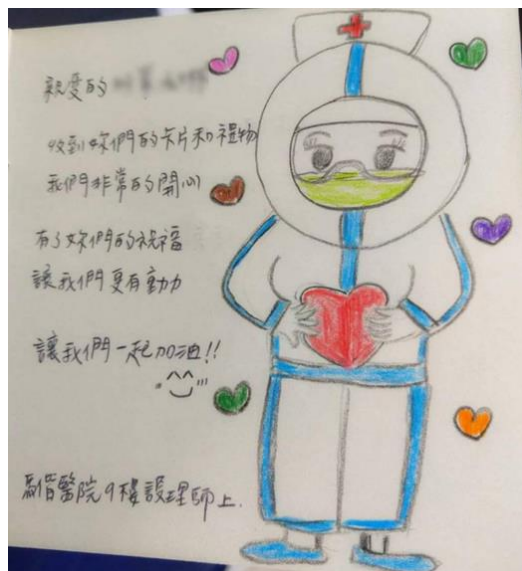 親愛的
收到妳們的卡片和禮物
我們非常的開心
有了妳們的祝福
讓我們更有動力
讓我們一起加油!!
馬偕醫院9樓護理師上.